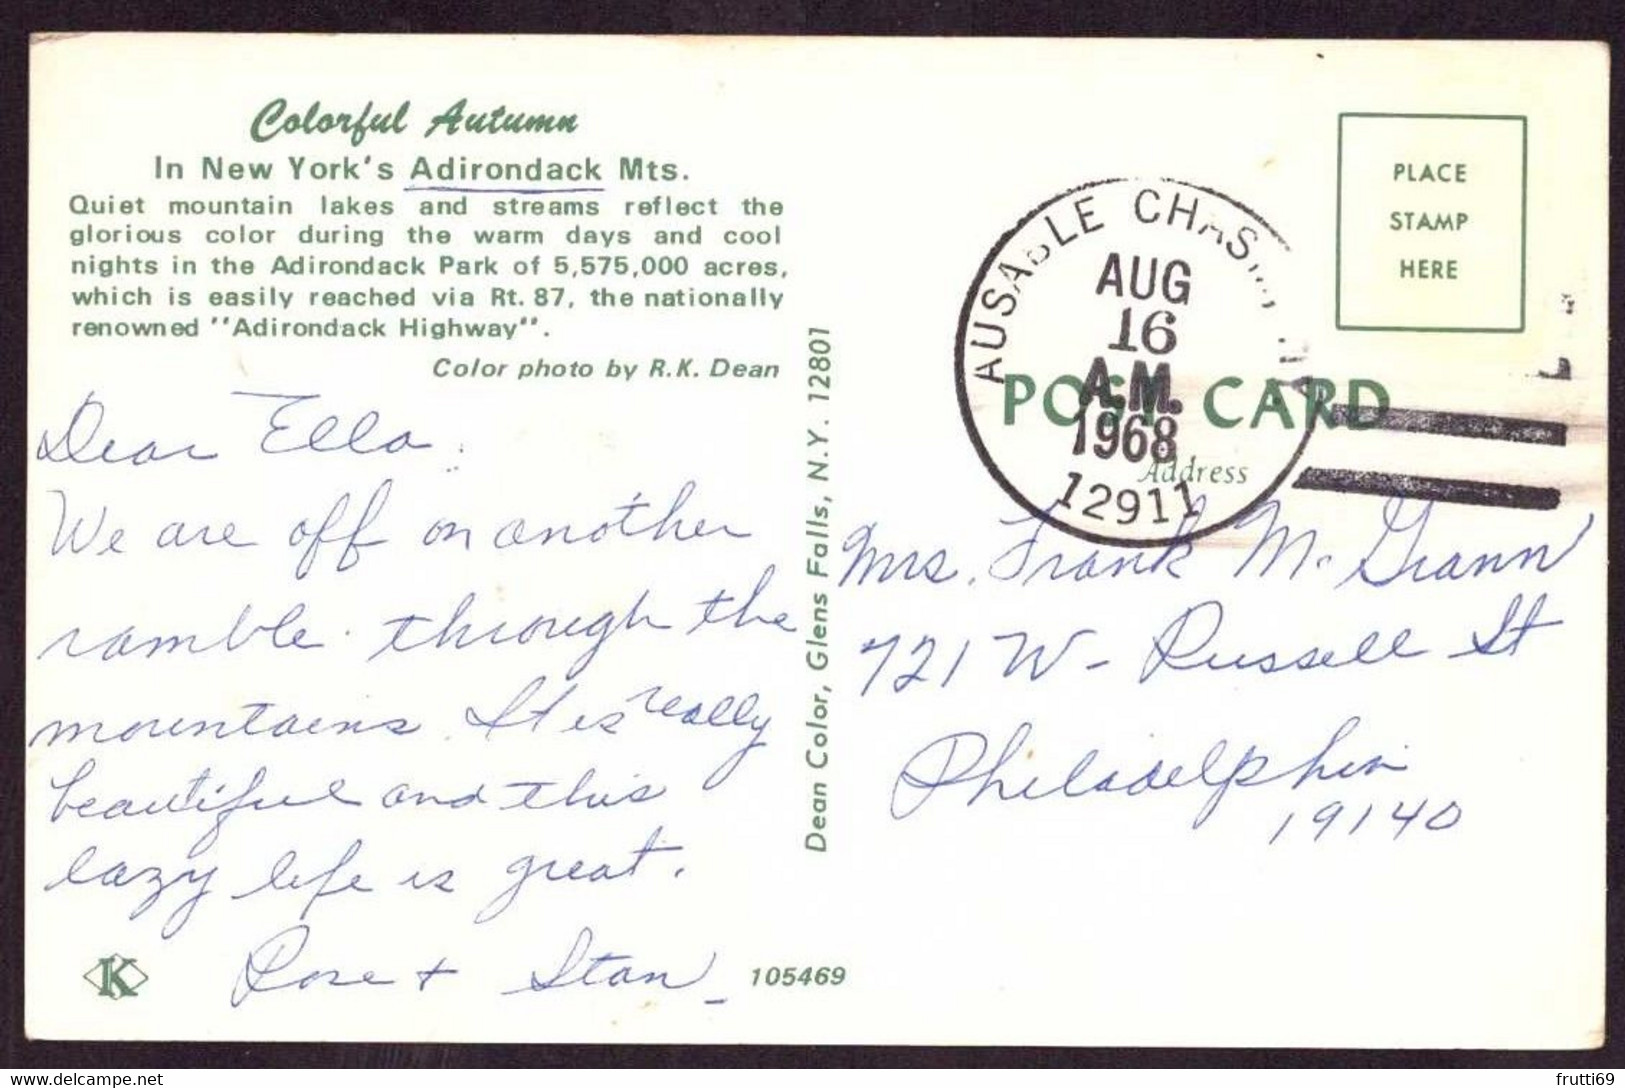 Colorful Autumn
In New York's Adirondack Mts.
Quiet mountain lakes and streams reflect the
glorious color during the warm days and cool
nights in the Adirondack Park of 5,575,000 acres,
which is easily reached via Rt. 87, the nationally
renowned "Adirondack Highway".
Color photo by R.K. Dean
Dear Ella
We are off on another
ramble through the
mountains. It is really
beautiful and this
lazy life is great.
Rose + Stan
K
105469
Dean Color, Glens Falls, N.Y. 12801
PLACE
STAMP
HERE
AUSABLE CHASM
AUG
16
A.M.
1968
12911
POST CARD
Address
Mrs. Frank McGrann
721 W- Russell St
Philadelphia
19140
delcampe.net
frutti69